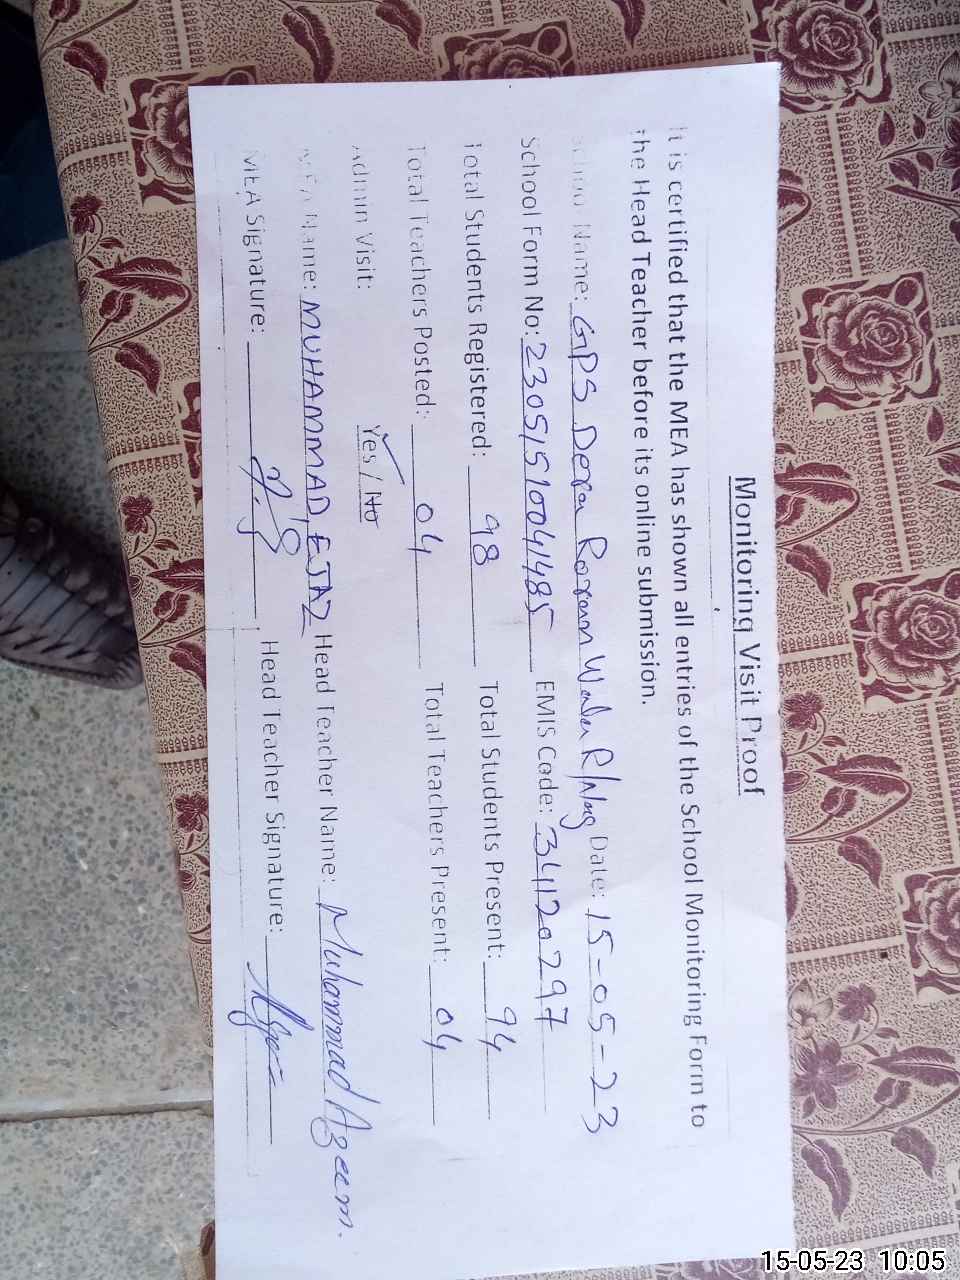 Monitoring Visit Proof
It is certified that the MEA has shown all entries of the School Monitoring Form to
the Head Teacher before its online submission.
School Name: GPS Dera Raman Wala R/Nag Date: 15-05-23
School Form No: 23051510041485 EMIS Code: 34120297
Total Students Registered: 98 Total Students Present: 94
Total Teachers Posted: 04 Total Teachers Present: 04
Admin Visit: Yes / No
MEA Name: MUHAMMAD EJAZ Head Teacher Name: Muhammad Azeem.
MEA Signature: Head Teacher Signature:
15-05-23 10:05